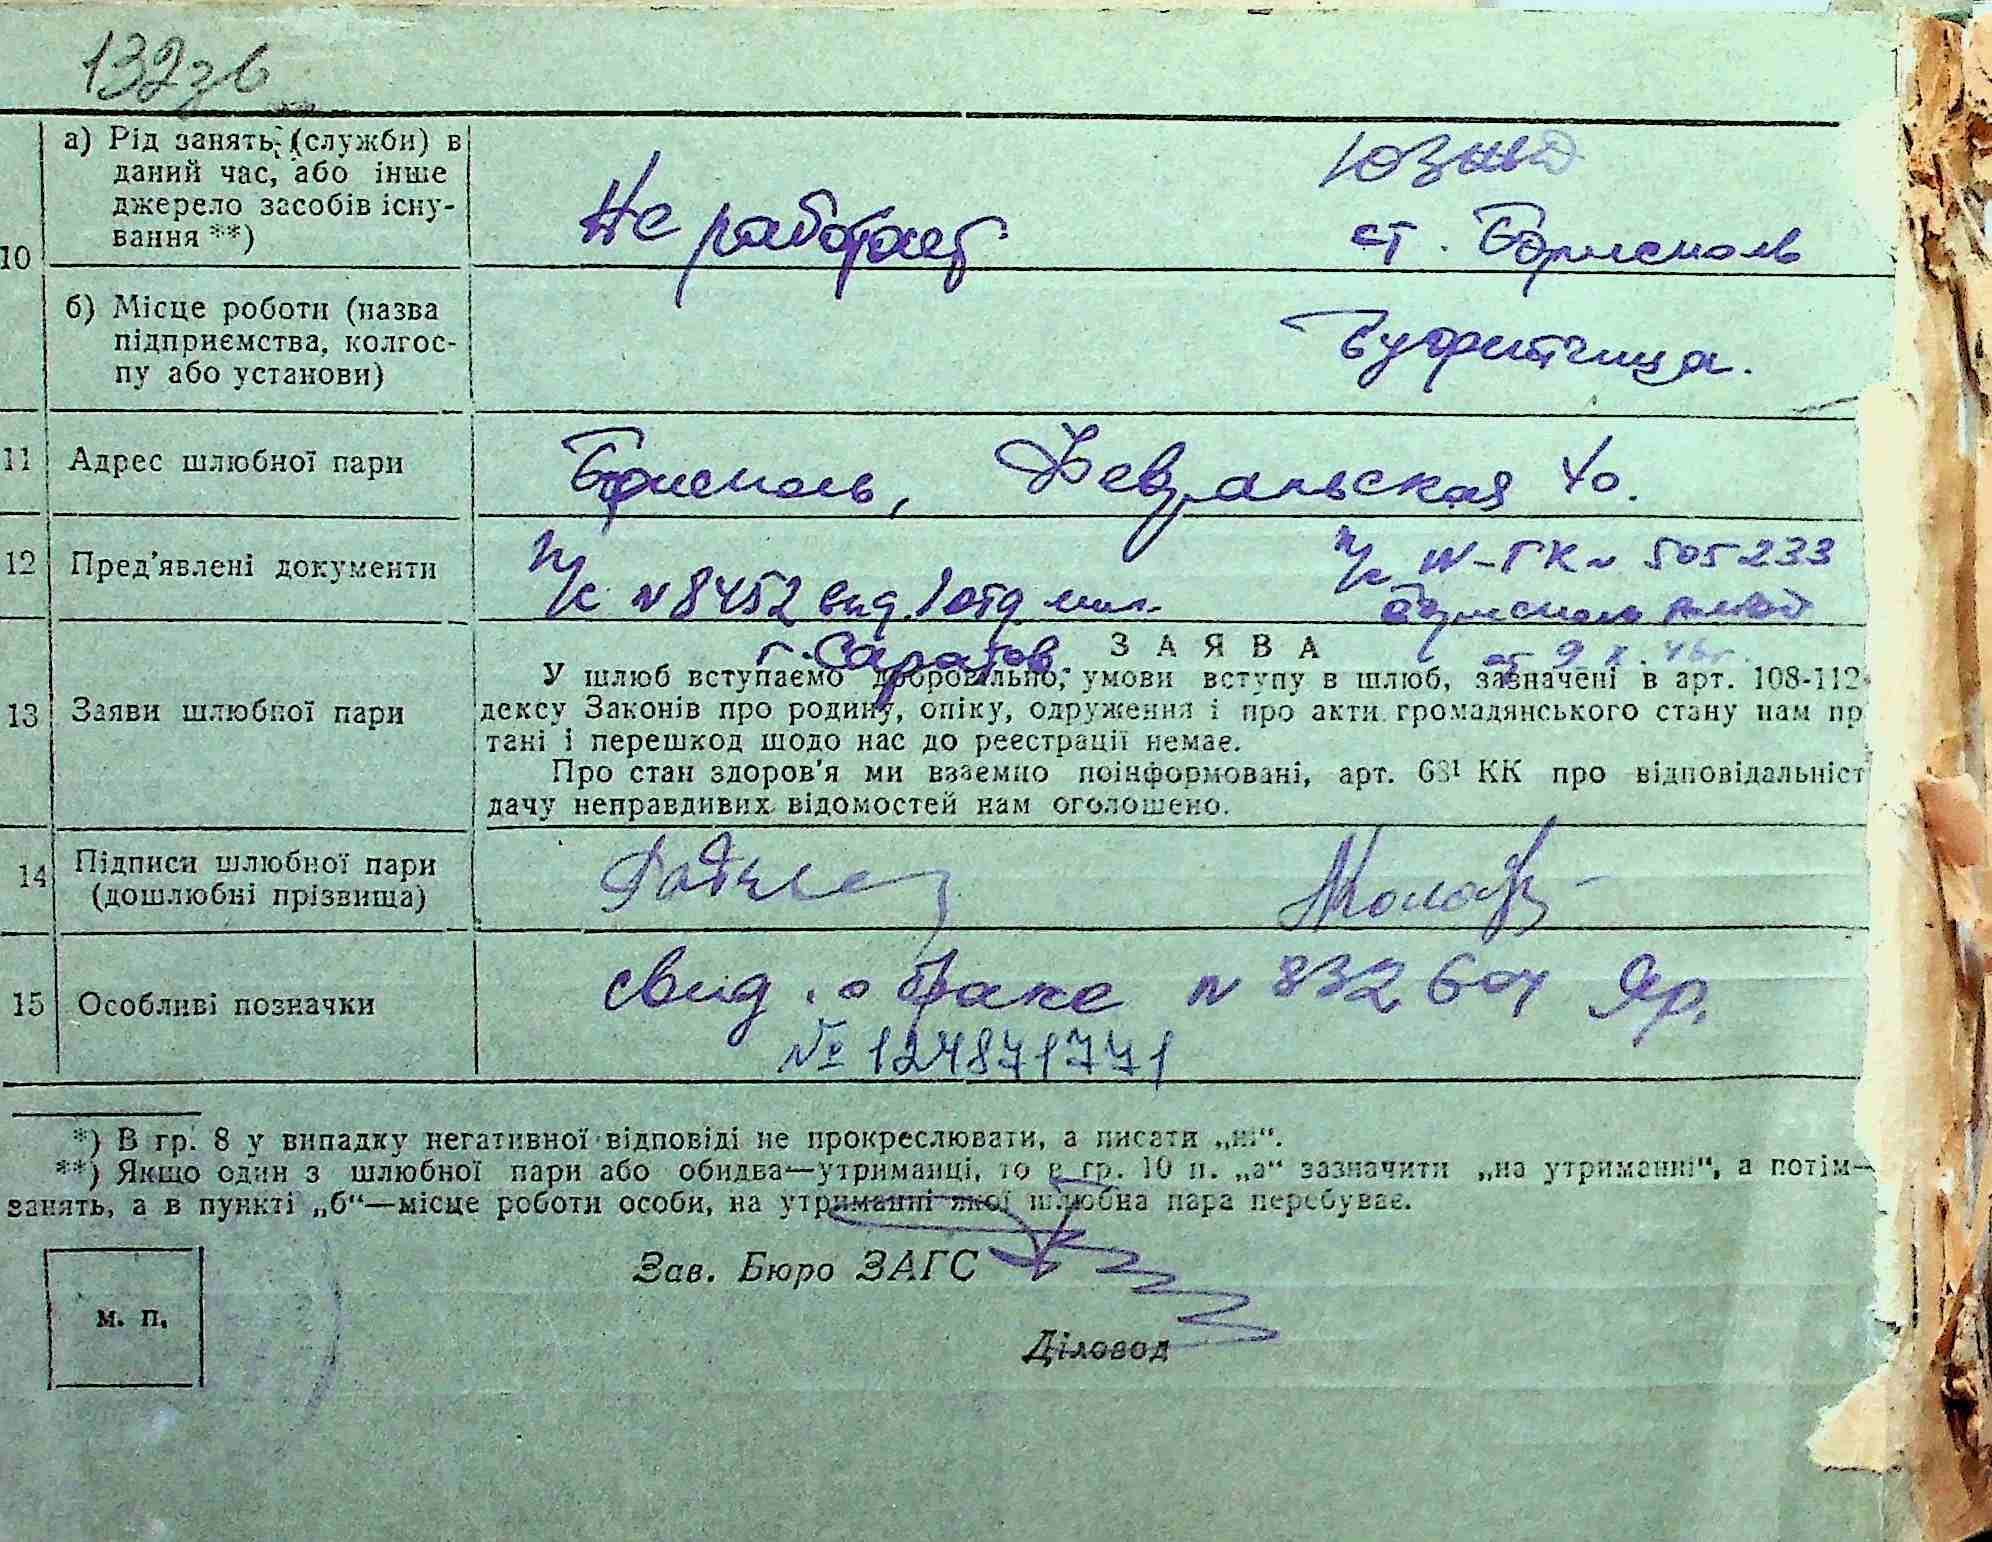 132зв
10
а) Рід занять (служби) в
даний час, або інше
джерело засобів існу-
вання **)
Не работает
ст. Борисполь
б) Місце роботи (назва
підприємства, колгос-
пу або установи)
Буфетчица.
11
Адрес шлюбної пари
Борисполь, Февральская 40.
12
Пред'явлені документи
п/с № 8452 выд. 1 отд. мил.
г. Саратов.
п/с IV-ГК № 505233
от 9 X. 46г.
ЗАЯВА
13
Заяви шлюбної пари
У шлюб вступаємо добровільно, умови вступу в шлюб, зазначені в арт. 108-112
дексу Законів про родину, опіку, одруження і про акти громадянського стану нам пр
тані і перешкод щодо нас до реєстрації немає.
Про стан здоров'я ми взаємно поінформовані, арт. 63¹ КК про відповідальніст
дачу неправдивих відомостей нам оголошено.
14
Підписи шлюбної пари
(дошлюбні прізвища)
15
Особливі позначки
свид. о браке № 832604 Яр.
№ 124871771
*) В гр. 8 у випадку негативної відповіді не прокреслювати, а писати „ні“.
**) Якщо один з шлюбної пари або обидва—утриманці, то в гр. 10 п. „а“ зазначити „на утриманні“, а потім—
занять, а в пункті „б“—місце роботи особи, на утриманні якої шлюбна пара перебуває.
Зав. Бюро ЗАГС
м. п.
Діловод